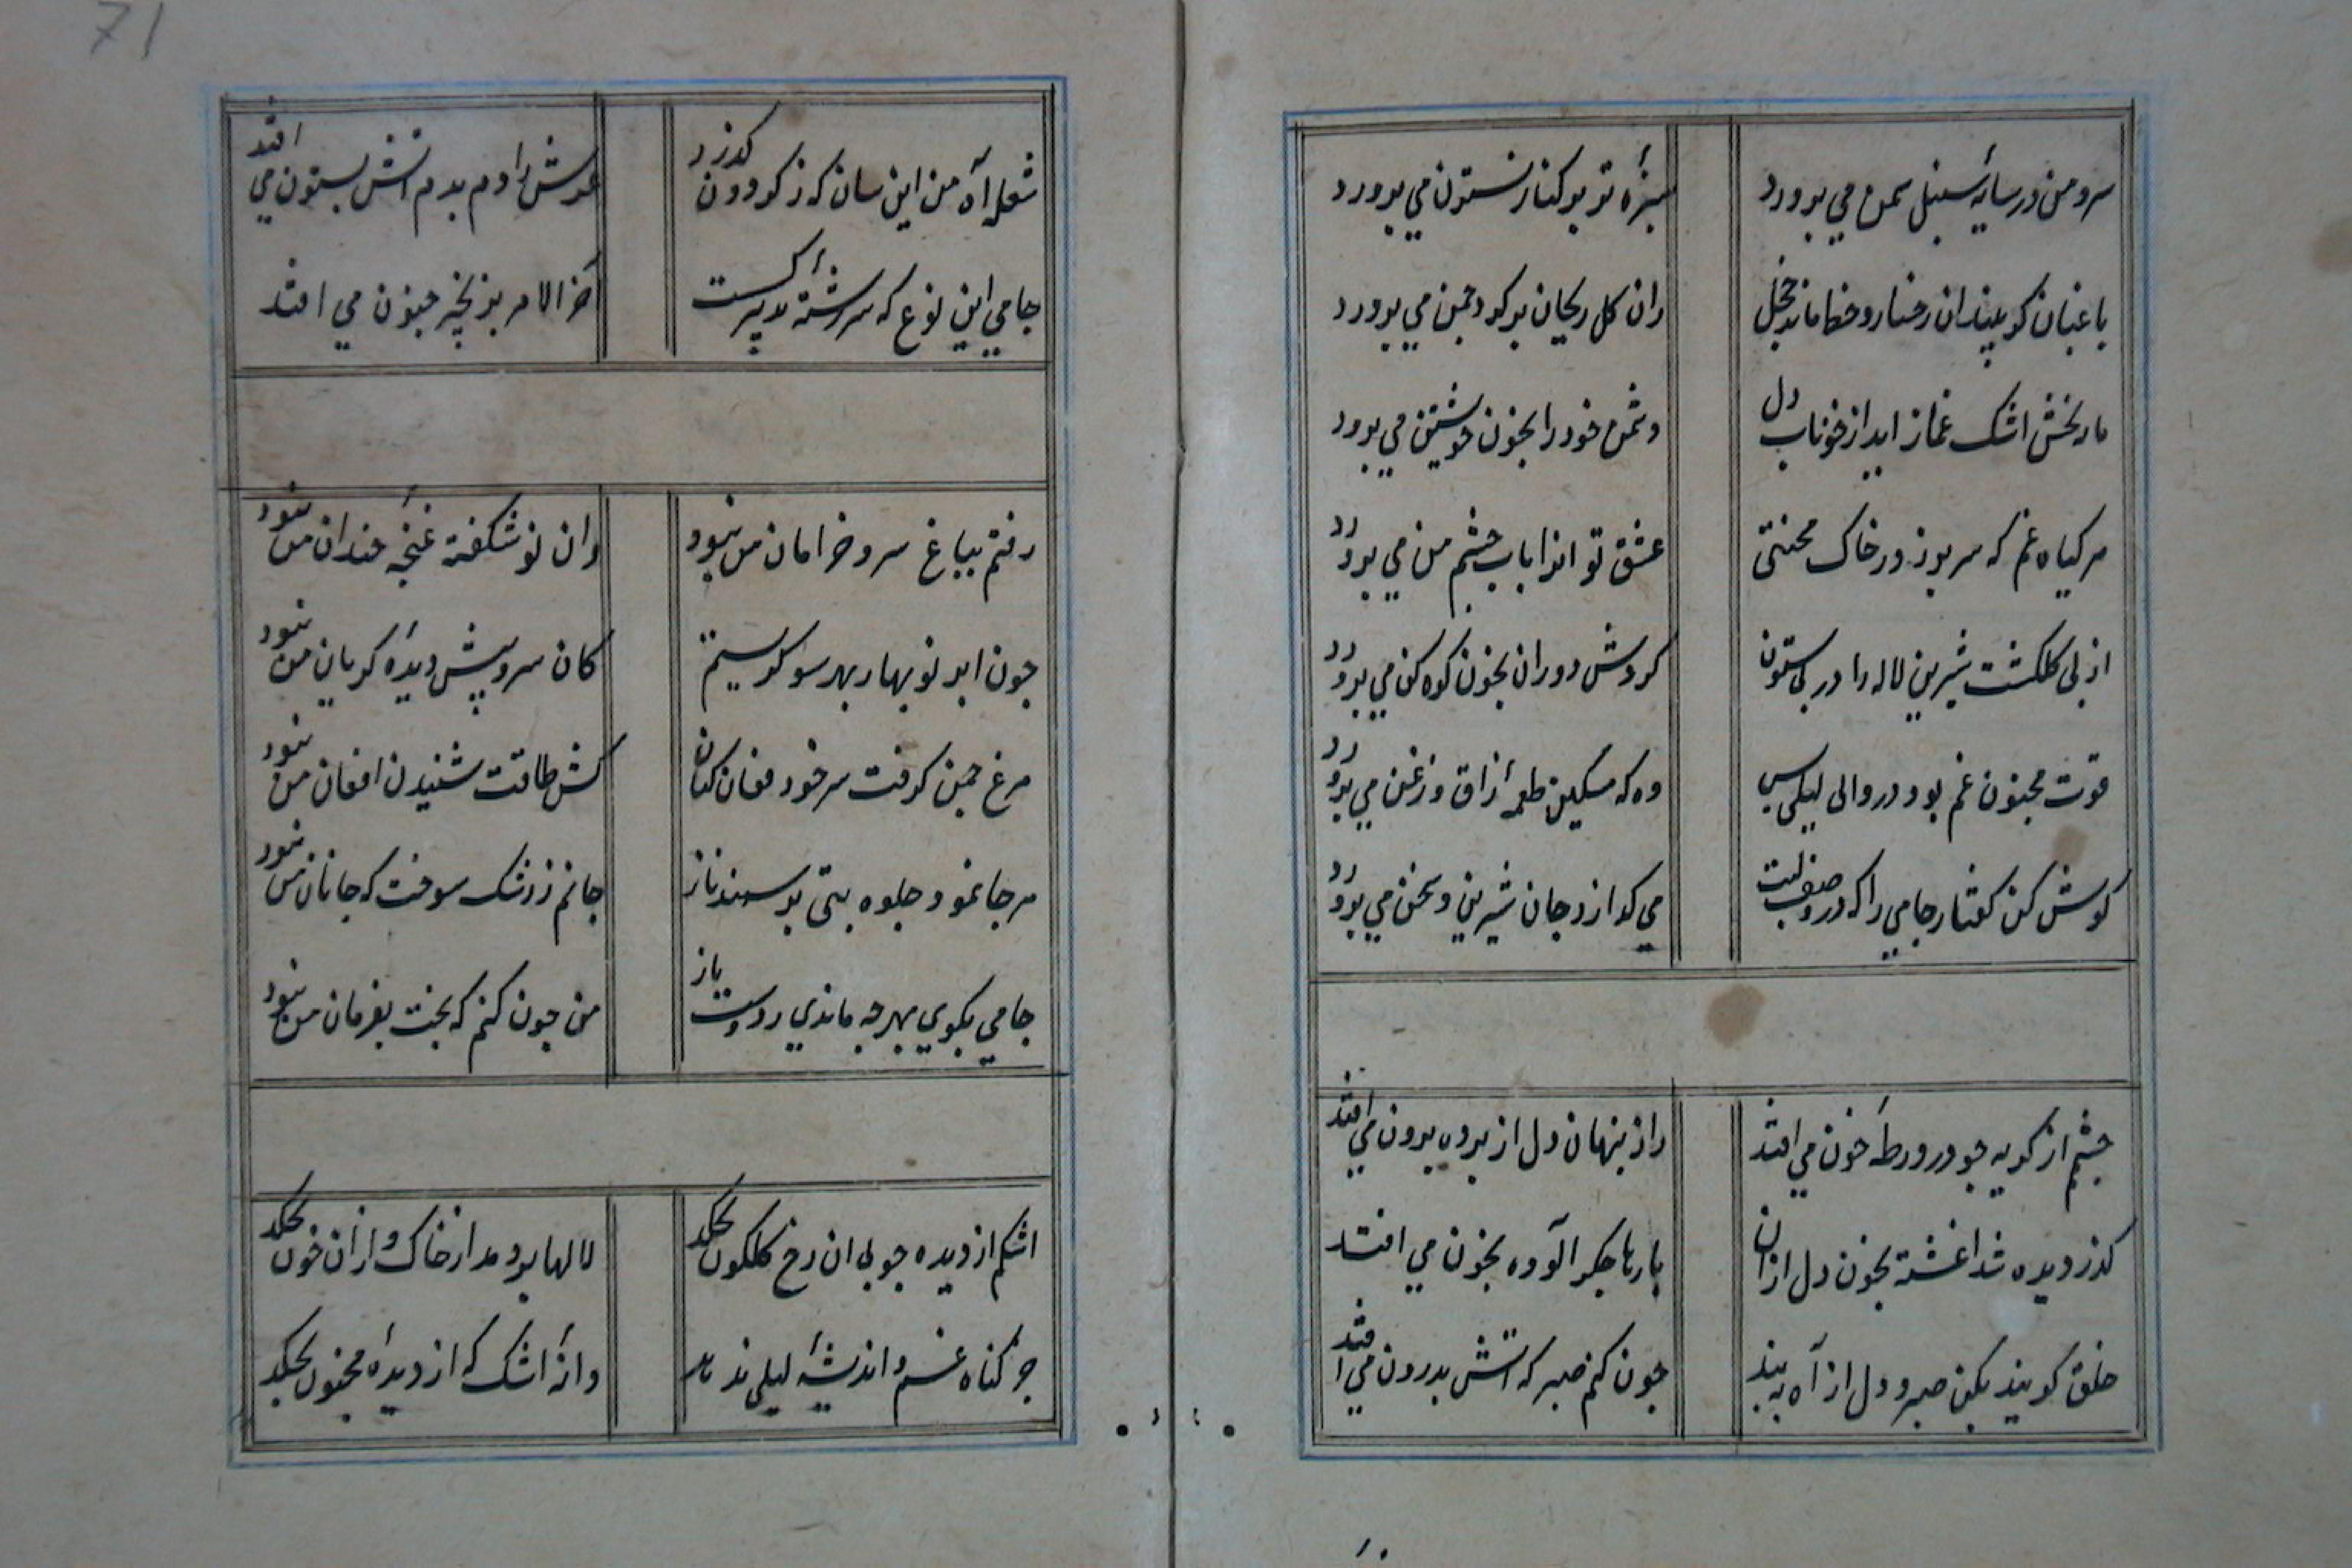 سرو من در سایهٔ سنبل سمن می پرورد
سبزهٔ تو بر کنار نسترن می پرورد
باغبان کو بیند ان رخسار و خط ماند خجل
زان کل ریحان بر کرد چمن می پرورد
مار بخش اشک غماز اید از خوناب دل
دشمن خود را بخون خویشتن می پرورد
هر کیاه غم که سر بر زد ز خاک محنتی
عشق تو انرا باب چشم من می پرورد
از پی کلکشت شیرین لاله را در بی ستون
کردش دوران بخون کوه کن می پرورد
قوت مجنون غم بود در وادی لیلی بس
وه که مسکین طعمهٔ زاق و زغن می پرورد
کوش کن کفتار جامی را که در وصف لبت
می کدازد جان شیرین و سخن می پرورد
چشم از کریه چو در ورطهٔ خون می افتد
راز پنهان دل از پرده برون می افتد
کذر دیده شد اغشته بخون دل از ان
بارها جکر الوده بخون می افتد
خلق کویند بکن صبر و دل از آه به بند
چون کنم صبر که اتش بدرون می افتد
71
شعلهٔ آه من این سان که ز کردون کذرد
عرش را دم بدم اتش بستون می افتد
جامی این نوع که سر رشتهٔ تدبیر کست
آخر الامر بزنجیر جنون می افتد
رفتم بباغ سرو خرامان من نبود
وان نو شکفته غنچهٔ خندان من نبود
چون ابر نو بهار بهر سو کریستم
کان سرو پیش دیدهٔ کریان من نبود
مرغ چمن کرفت سر خود فغان کنان
کش طاقت شنیدن افغان من نبود
هر جا نمود جلوه بتی بر سمند ناز
جانم ز رشک سوخت که جانان من نبود
جامی بکوی بهر چه ماندی ز دوست باز
من چون کنم که بخت بفرمان من نبود
اشکم از دیده چو بی ان رخ کلکون بچکد
لالها بر دمد از خاک و از ان خون بچکد
جز کناه غم و اندیشهٔ لیلی ندهد
دانهٔ اشک که از دیدهٔ مجنون بچکد